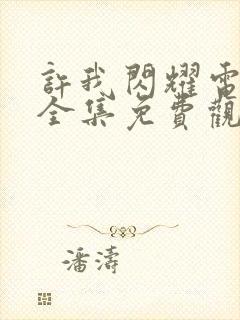 許我閃耀電
全集免費觀
潘濤